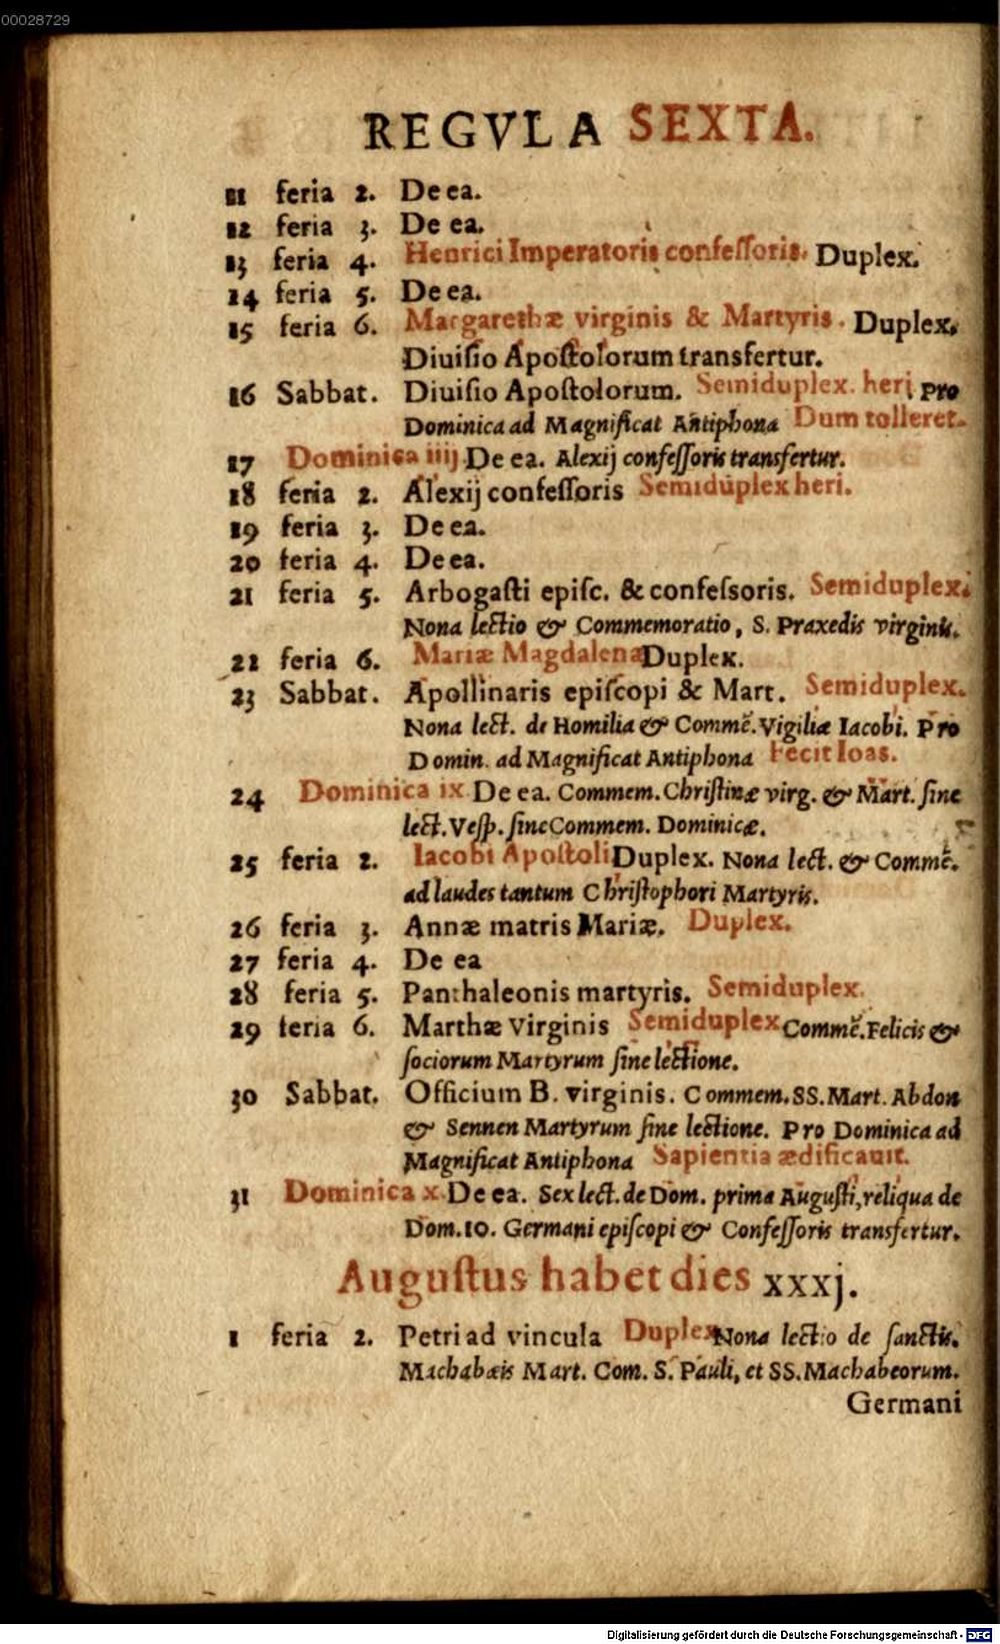 00028729
REGVLA SEXTA.
11 feria 2. De ea.
12 feria 3. De ea.
13 feria 4. Henrici Imperatoris confeſſoris. Duplex.
14 feria 5. De ea.
15 feria 6. Margarethæ virginis & Martyris. Duplex.
Diuiſio Apoſtolorum transfertur.
16 Sabbat. Diuiſio Apoſtolorum. Semiduplex. heri Pro
Dominica ad Magnificat Antiphona Dum tolleret.
17 Dominica iiij De ea. Alexij confeſſoris transfertur.
18 feria 2. Alexij confeſſoris Semiduplex heri.
19 feria 3. De ea.
20 feria 4. De ea.
21 feria 5. Arbogaſti epiſc. & confeſsoris. Semiduplex.
Nona lectio & Commemoratio, S. Praxedis virginis.
22 feria 6. Mariæ Magdalenæ Duplex.
23 Sabbat. Apollinaris epiſcopi & Mart. Semiduplex.
Nona lect. de Homilia & Commē. Vigiliæ Iacobi. Pro
Domin. ad Magnificat Antiphona Fecit Ioas.
24 Dominica ix De ea. Commem. Chriſtinæ virg. & Mart. ſine
lect. Veſp. ſine Commem. Dominicæ.
25 feria 2. Iacobi Apoſtoli Duplex. Nona lect. & Commē.
ad laudes tantum Chriſtophori Martyris.
26 feria 3. Annæ matris Mariæ. Duplex.
27 feria 4. De ea
28 feria 5. Panthaleonis martyris. Semiduplex.
29 feria 6. Marthæ Virginis Semiduplex Commē. Felicis &
ſociorum Martyrum ſine lectione.
30 Sabbat. Officium B. virginis. Commem. SS. Mart. Abdon
& Sennen Martyrum ſine lectione. Pro Dominica ad
Magnificat Antiphona Sapientia ædificauit.
31 Dominica x. De ea. Sex lect. de Dom. prima Auguſti, reliqua de
Dom. 10. Germani epiſcopi & Confeſſoris transfertur.
Auguſtus habet dies xxxj.
1 feria 2. Petri ad vincula Duplex Nona lectio de ſanctis.
Machabæis Mart. Com. S. Pauli, et SS. Machabeorum.
Germani
Digitalisierung gefördert durch die Deutsche Forschungsgemeinschaft - DFG